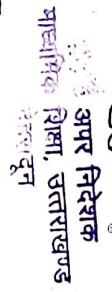 अपर निदेशक
माध्यमिक शिक्षा, उत्तराखण्ड
देहरादून